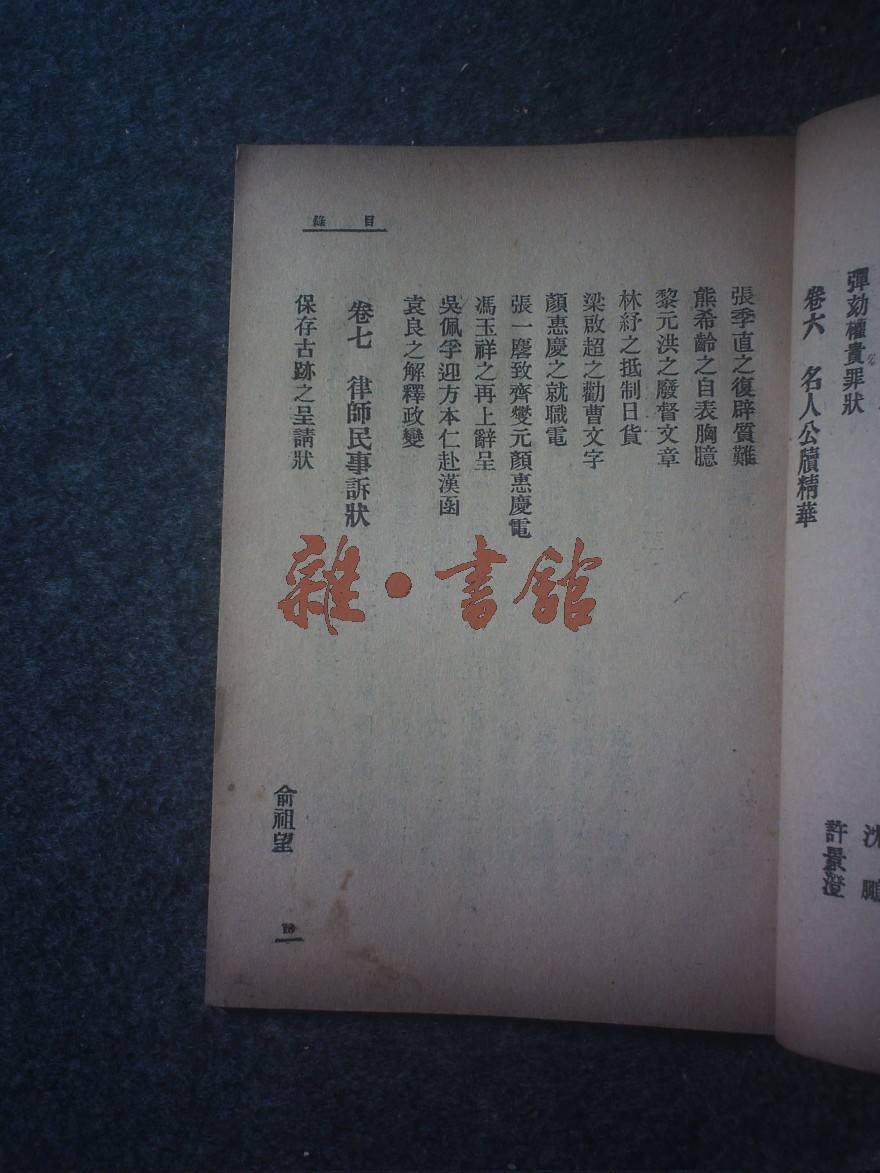 彈劾權貴罪狀
許景澄
卷六 名人公牘精華
目錄
張季直之復辟質難
熊希齡之自表胸臆
黎元洪之廢督文章
林紓之抵制日貨
梁啟超之勸曹文字
顏惠慶之就職電
張一麐致齊燮元顏惠慶電
馮玉祥之再上辭呈
吳佩孚迎方本仁赴漢函
袁良之解釋政變
卷七 律師民事訴狀
保存古跡之呈請狀
俞祖望
雜·書館